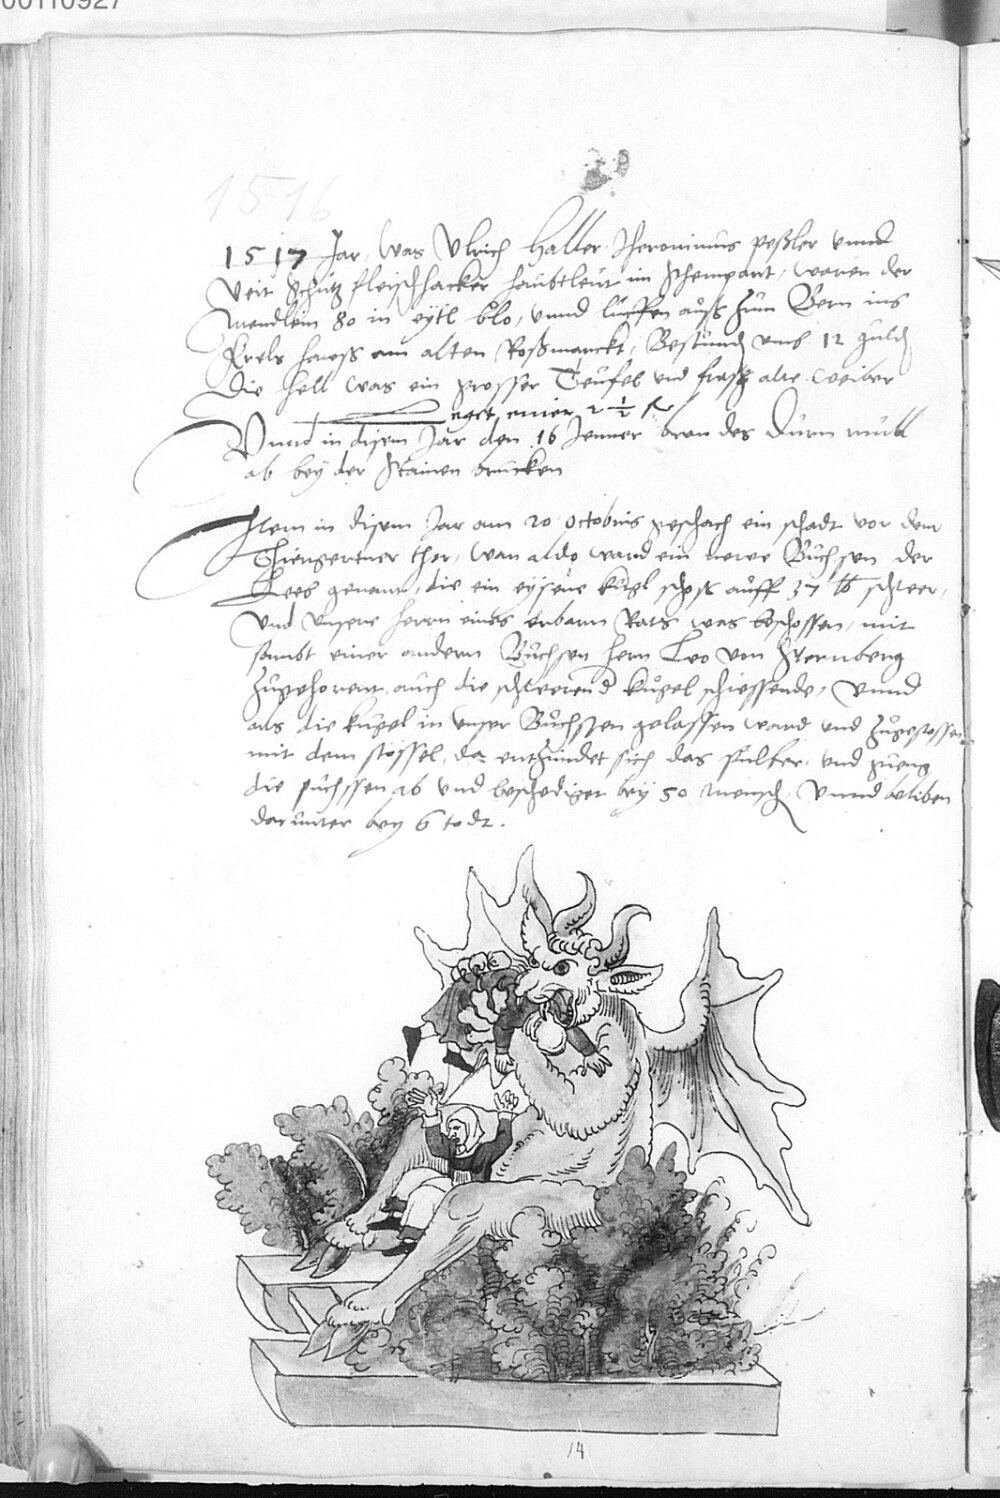 00110927
1516
1517 Jar, Was Ulrich Haller Iheronimus peßler unnd
Veit Schütz fleischhacker haubtleut im Schempart, waren der
Mendlein 80 in eytl blo, unnd lüffen auß zum Bern ins
Krels hauß am alten Roßmarckt, Bestünd umb 12 guld
Die hell was ein grosser Teüfel und fraß alte weiber
einer 2 1/2
Unnd in disem Jar den 16 Jenner bran des Dürn müll
ab bey der Stainen brucken
Item in disem Jar am 20 octobris geschach ein schadt vor dem
Thiergertner thor, wan aldo ward ein newe Büchsen der
genant, die ein eyserne kugel schoß auff 37 lb schwer,
und unsere herrn eines erbarn Rats was beschossen, mit
sambt einer andern Büchsen hern Leo von Sternberg
zugehorent, auch die schwerend kugel schiessende, Unnd
als die kugel in unser Büchssen gelassen ward und zugestossen
mit dem stössel, da entzündet sich das fulfer, und gieng
die püchssen ab und beschediget bey 50 mensch, Unnd beliben
darunter bey 6 todt.
14